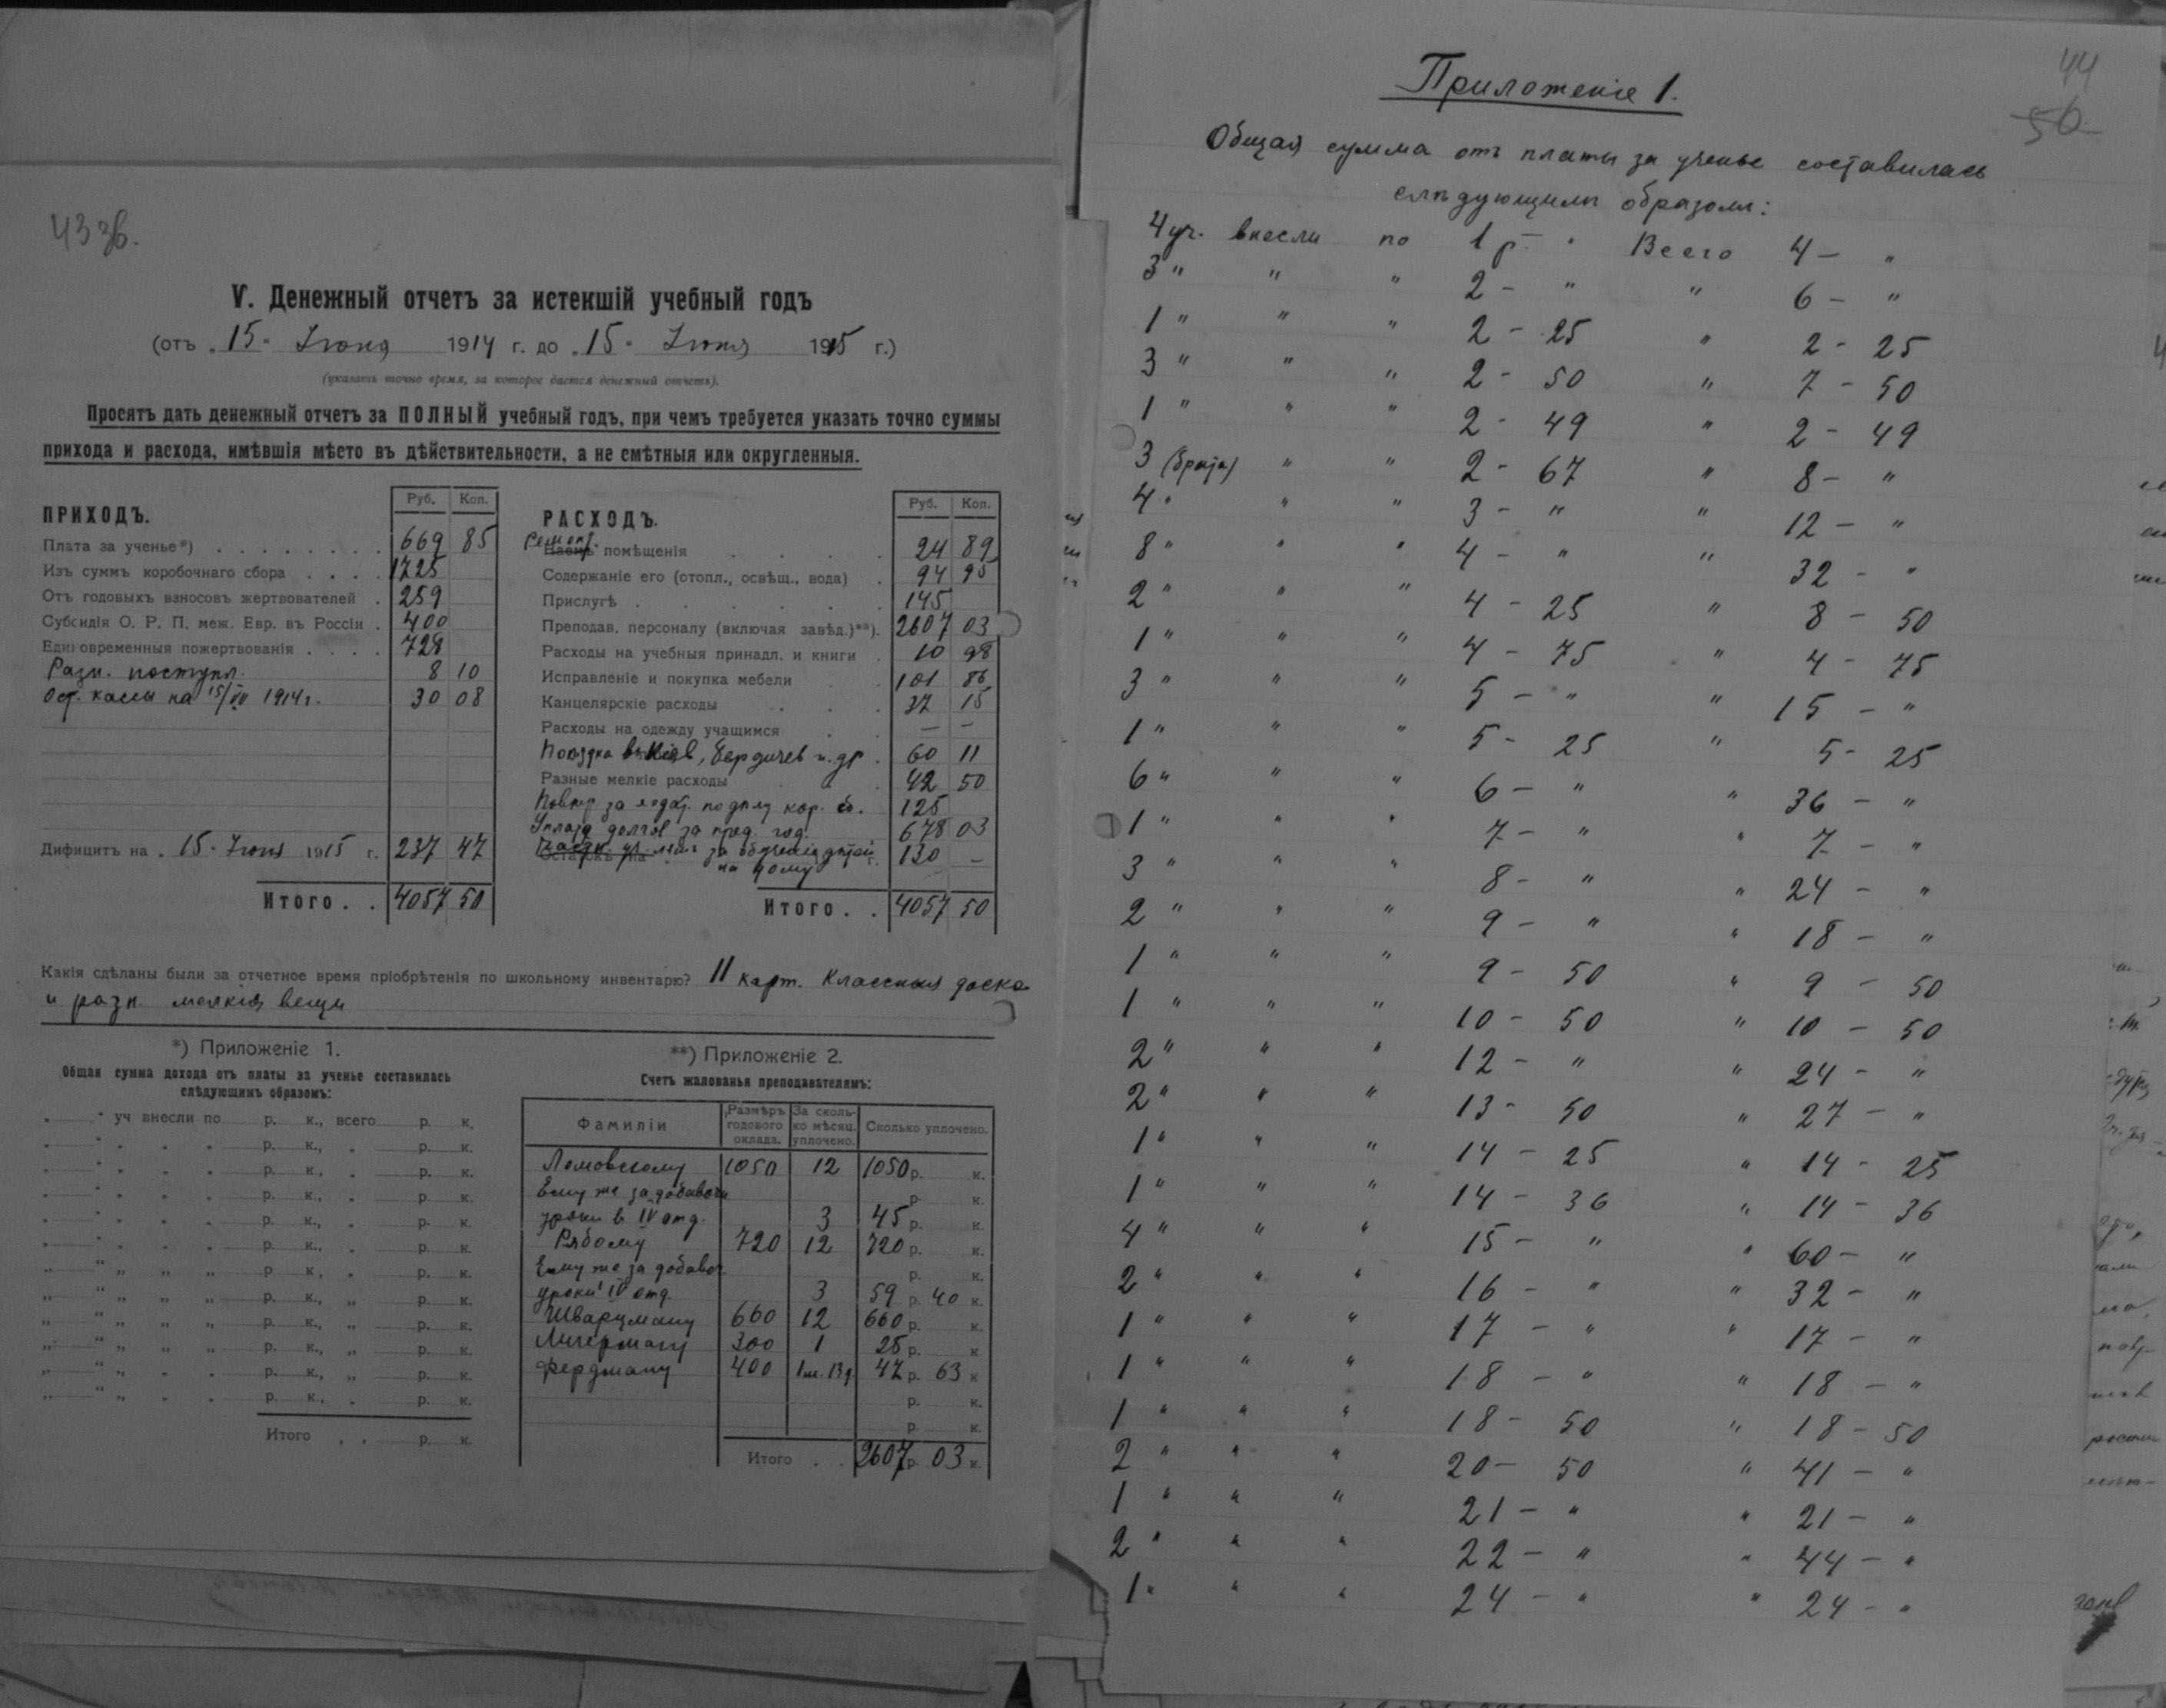 43 зв.
V. Денежный отчетъ за истекшій учебный годъ
(отъ „15“ Іюня 1914 г. до „15“ Іюня 1915 г.)
(указать точно время, за которое дается денежный отчетъ).
Просятъ дать денежный отчетъ за ПОЛНЫЙ учебный годъ, при чемъ требуется указать точно суммы
прихода и расхода, имѣвшія мѣсто въ дѣйствительности, а не смѣтныя или округленныя.
ПРИХОДЪ. Руб. Коп.
Плата за ученье*) 669 85
Изъ суммъ коробочнаго сбора 1725
Отъ годовыхъ взносовъ жертвователей 259
Субсидія О. Р. П. меж. Евр. въ Россіи 400
Единовременныя пожертвованія 728
Разн. поступл. 8 10
Ост. кассы на 15/VI 1914 г. 30 08
Дифицитъ на „15“ Іюня 1915 г. 237 47
Итого . . 4057 50
РАСХОДЪ. Руб. Коп.
Ремонт. Наемъ помѣщенія 24 89
Содержаніе его (отопл., освѣщ., вода) 94 95
Прислугѣ 145
Преподав. персоналу (включая завѣд.)**). 2607 03
Расходы на учебныя принадл. и книги 10 98
Исправленіе и покупка мебели 101 86
Канцелярскіе расходы 37 15
Расходы на одежду учащимся — —
Поездка в Кіев, Бердичев и др. 60 11
Разные мелкіе расходы 42 50
за ходат. по делу кор. сб. 125
Уплата долгов за пред. год. 678 03
за обученіе детей 130 —
на дому
Итого . . 4057 50
Какія сдѣланы были за отчетное время пріобрѣтенія по школьному инвентарю? 11 карт. Классная доска
и разн. мелкія вещи
*) Приложеніе 1.
Общая сумма дохода отъ платы за ученье составилась
слѣдующимъ образомъ:
„ “ уч внесли по р. к., всего р. к.
„ “ „ „ р. к., „ р. к.
„ “ „ „ р. к., „ р. к.
„ “ „ „ р. к., „ р. к.
„ “ „ „ р. к., „ р. к.
„ “ „ „ р. к., „ р. к.
„ “ „ „ „ р. к., „ р. к.
„ “ „ „ „ р. к., „ р. к.
„ “ „ „ „ р. к., „ р. к.
„ “ „ „ „ р. к., „ р. к.
„ “ „ „ р. к., „ р. к.
„ “ „ „ р. к., „ р. к.
Итого . . р. к.
**) Приложеніе 2.
Счетъ жалованья преподавателямъ:
Фамиліи Размѣръ годового оклада. За сколько мѣсяц. уплочено. Сколько уплочено.
Ломовскому 1050 12 1050 р. к.
Ему же за добавочн. р. к.
уроки в IV отд. 3 45 р. к.
Рябому 720 12 720 р. к.
Ему же за добавоч. р. к.
уроки IV отд. 3 59 р. 40 к.
Шварцману 660 12 660 р. к.
300 1 25 р. к
Фердману 400 1 м. 13 д. 47 р. 63 к
р. к.
р. к.
Итого . . 2607 р. 03 к.
44
50
Приложеніе 1.
Общая сумма отъ платы за ученье составилась
слѣдующимъ образом:
4 уч. внесли по 1 р — " Всего 4 — "
3 " " " 2 — " " 6 — "
1 " " " 2 - 25 " 2 - 25
3 " " " 2 - 50 " 7 - 50
1 " " " 2 - 49 " 2 - 49
3 (брата) " " 2 - 67 " 8 - "
4 " " " 3 - " " 12 - "
8 " " " 4 - " " 32 - "
2 " " " 4 - 25 " 8 - 50
1 " " " 4 - 75 " 4 - 75
3 " " " 5 - " " 15 - "
1 " " " 5 - 25 " 5 - 25
6 " " " 6 - " " 36 - "
1 " " " 7 - " " 7 - "
3 " " " 8 - " " 24 - "
2 " " " 9 - " " 18 - "
1 " " " 9 - 50 " 9 - 50
1 " " " 10 - 50 " 10 - 50
2 " " " 12 - " " 24 - "
2 " " " 13 - 50 " 27 - "
1 " " " 14 - 25 " 14 - 25
1 " " " 14 - 36 " 14 - 36
4 " " " 15 - " " 60 - "
2 " " " 16 - " " 32 - "
1 " " " 17 - " " 17 - "
1 " " " 18 - " " 18 - "
1 " " " 18 - 50 " 18 - 50
2 " " " 20 - 50 " 41 - "
1 " " " 21 - " " 21 - "
2 " " " 22 - " " 44 - "
1 " " " 24 - " " 24 - "